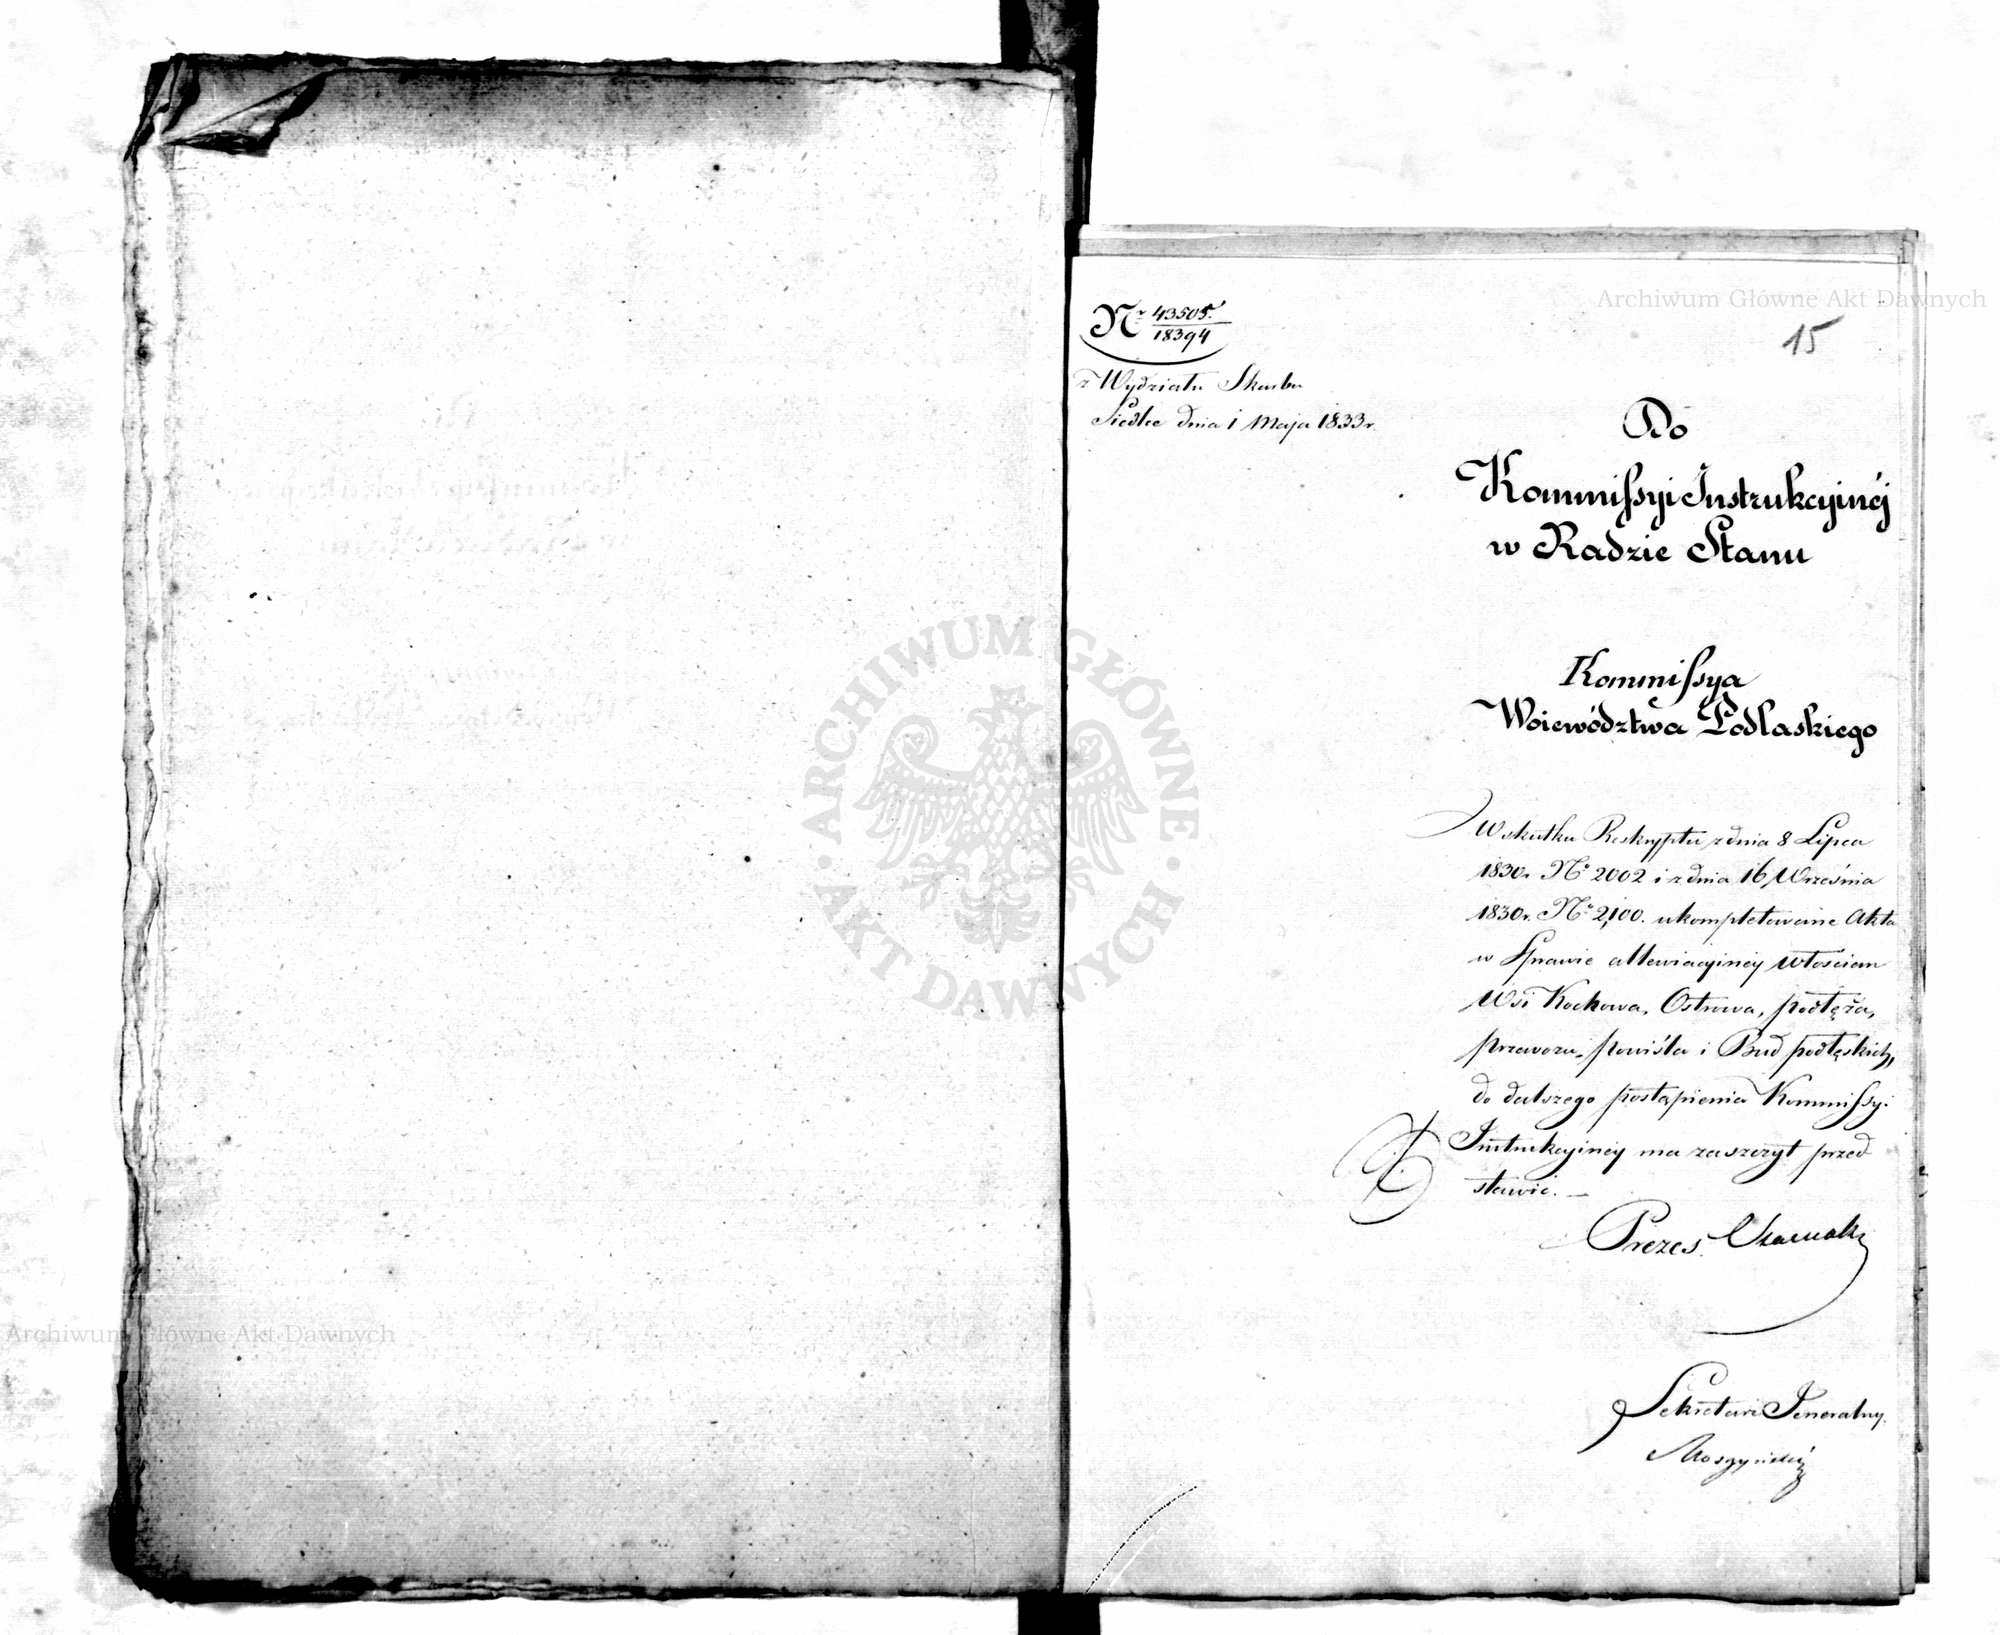 Archiwum Główne Akt Dawnych
15
Nr 43505.
18394
z Wydziału Skarbu
Siedlce dnia 1 Maja 1833r.
Do
Kommissyi Instrukcyinéj
w Radzie Stanu
Kommissya
Woiewództwa Podlaskiego
W skutku Reskryptu z dnia 8 Lipca
1830r. No 2002 i z dnia 16 Września
1830r. No 2,100. ukompletowane Akta
w Sprawie allewiacyiney włościan
Wsi Kochowa, Ostrowa, podłęża,
przewozu, powiśla i Bud podłęskich,
do dalszego postąpienia Kommissyi
Instrukcyiney ma zaszczyt przed
stawić. —
Prezes
Sekretarz Jeneralny.
ARCHIWUM GŁÓWNE
AKT DAWNYCH
Archiwum Główne Akt Dawnych